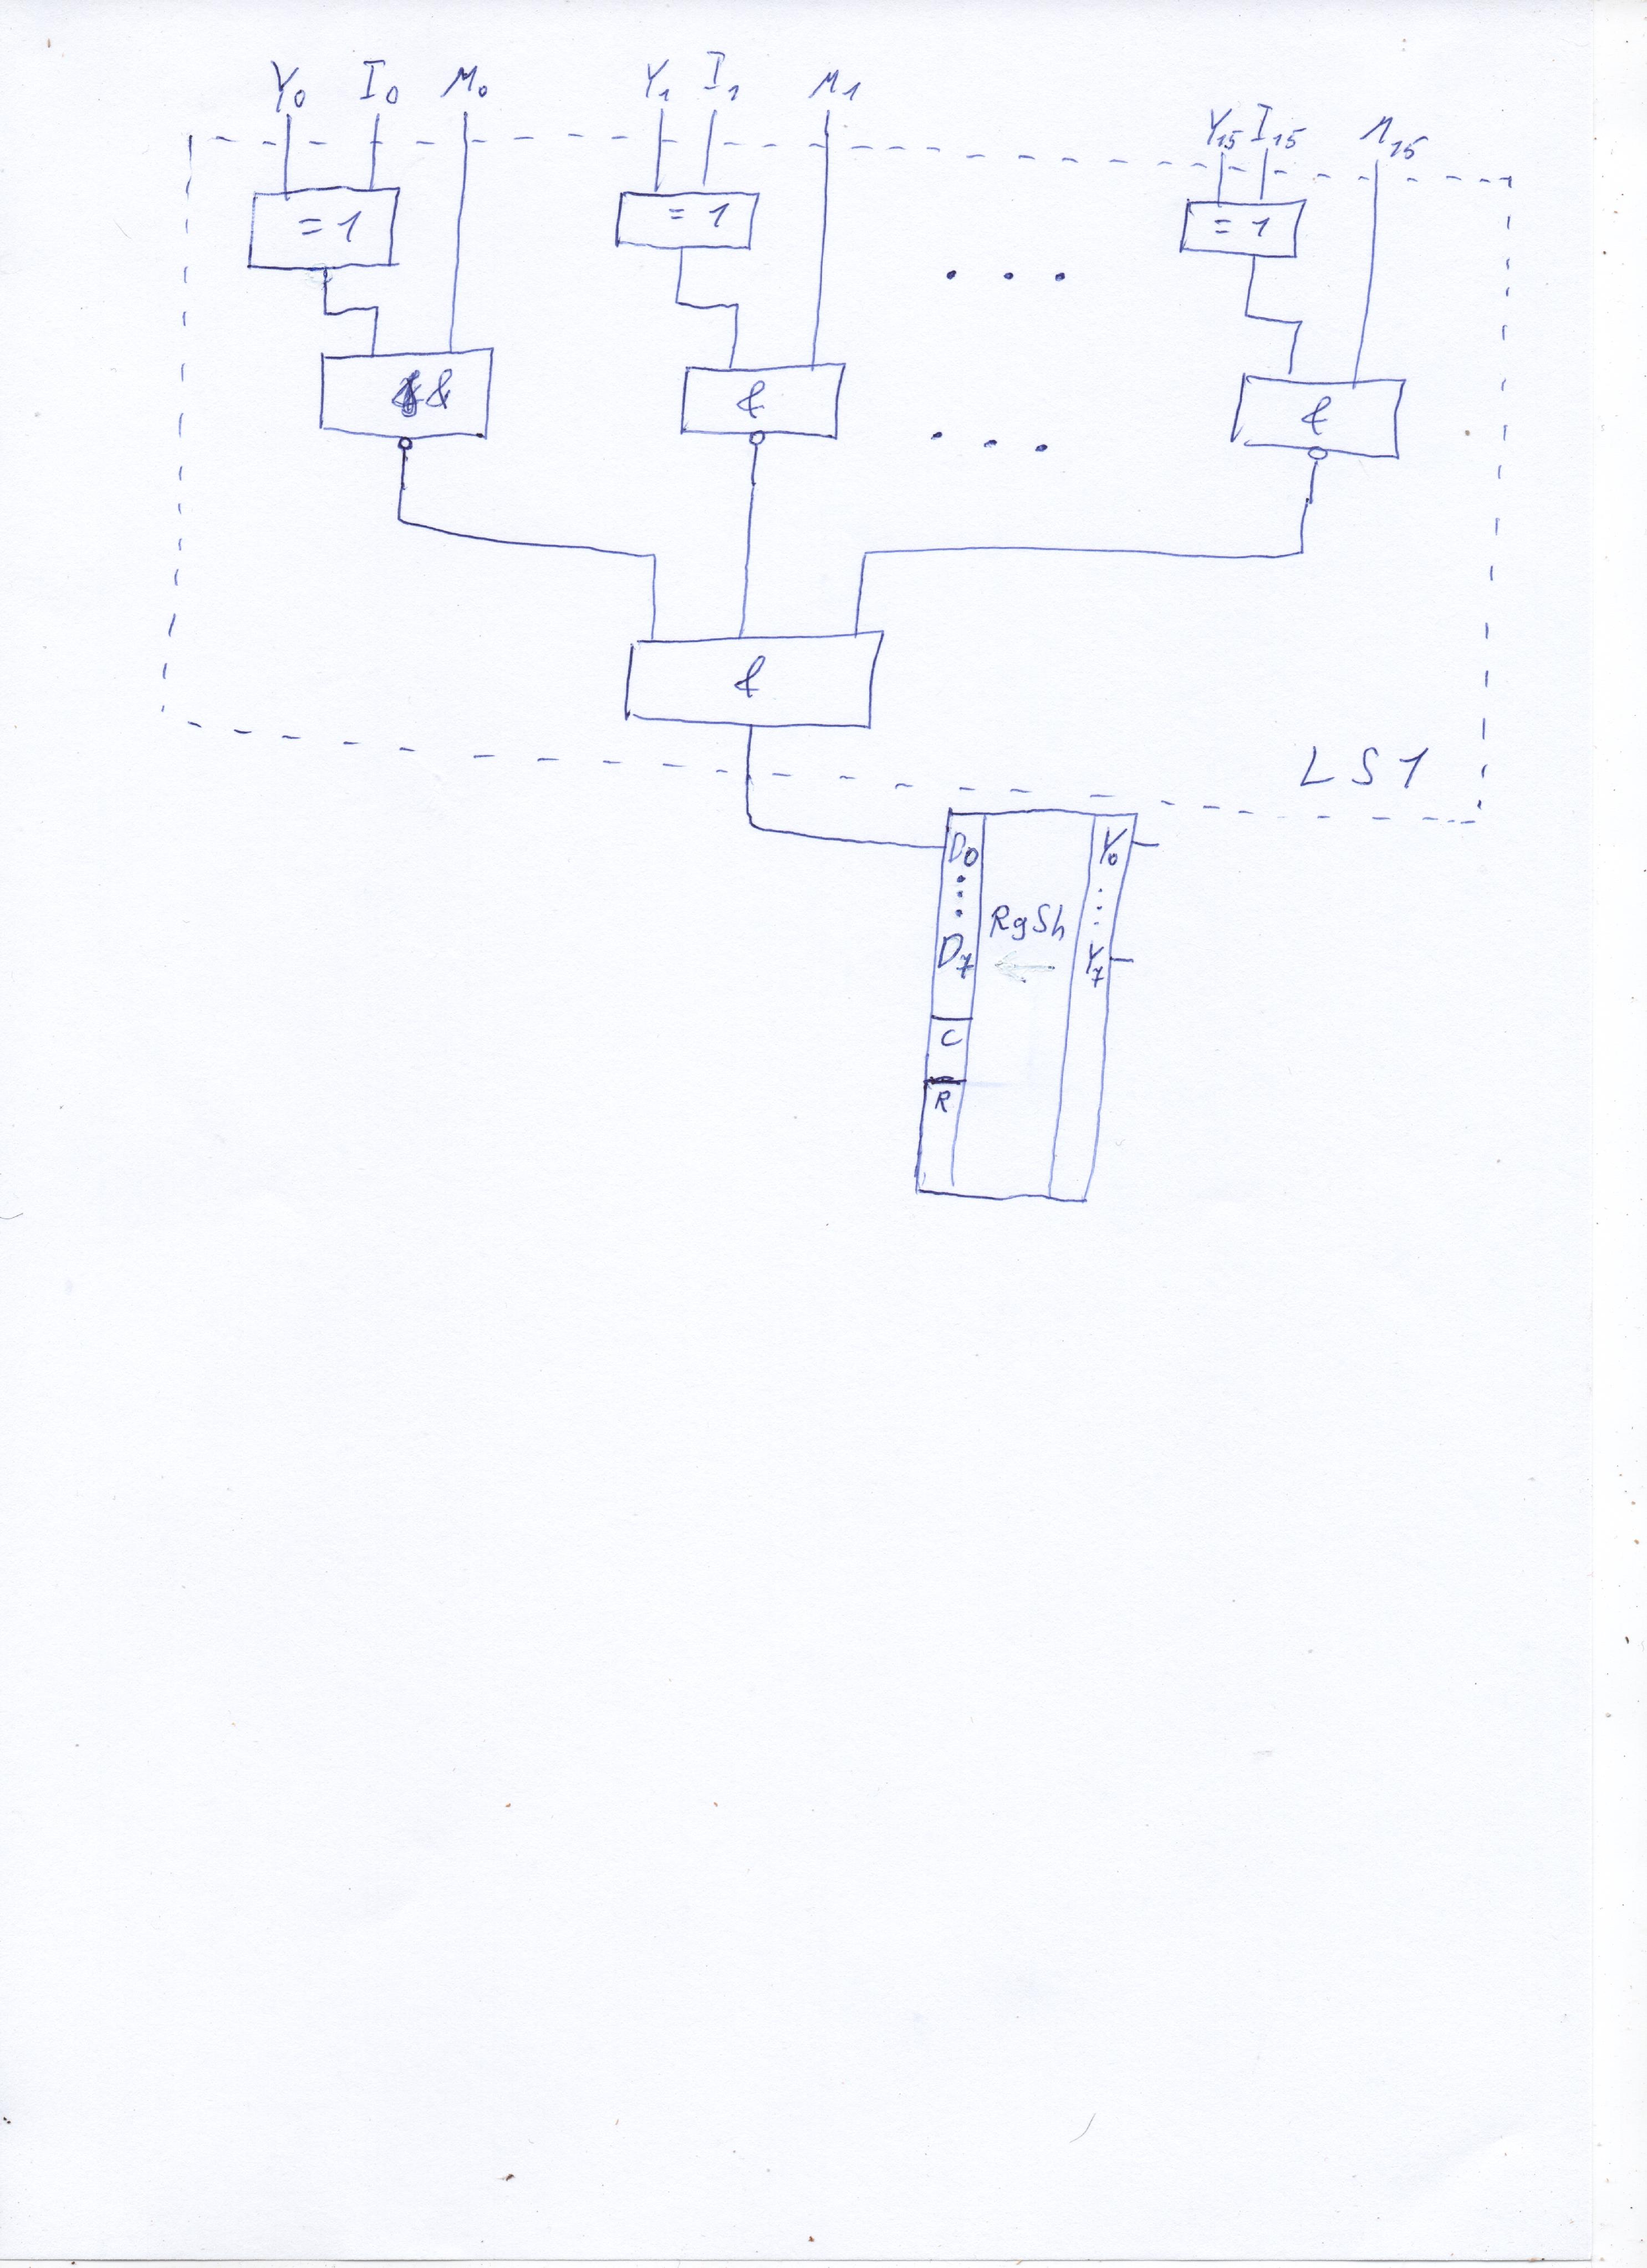 Y0 I0 M0 Y1 I1 M1 Y15 I15 M15
=1 =1 =1
& & &
&
LS1
D0 Y0
RgSh
D7 Y7
C
R